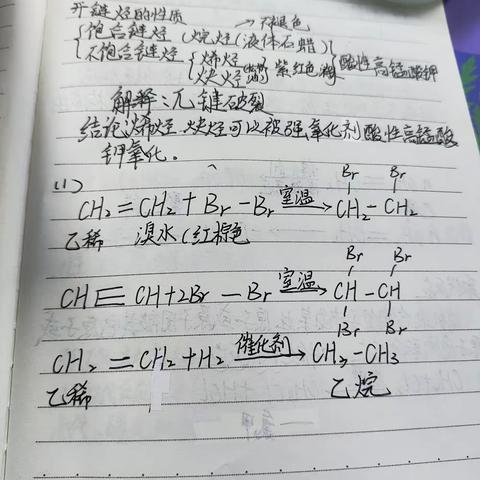 开链烃的性质 →不褪色
{饱合链烃(烷烃(液体石蜡)
不饱合链烃{烯烃 炔烃 紫红色 }酸性高锰酸钾
解释:π键破裂
结论:烯烃.炔烃可以被强氧化剂酸性高锰酸
钾氧化。
(1)
Br Br
CH₂=CH₂+Br-Br 室温→ CH₂-CH₂
乙稀 溴水(红棕色
Br Br
CH≡CH+2Br-Br 室温→ CH-CH
Br Br
CH₂=CH₂+H₂ 催化剂→ CH₃-CH₃
乙稀 乙烷